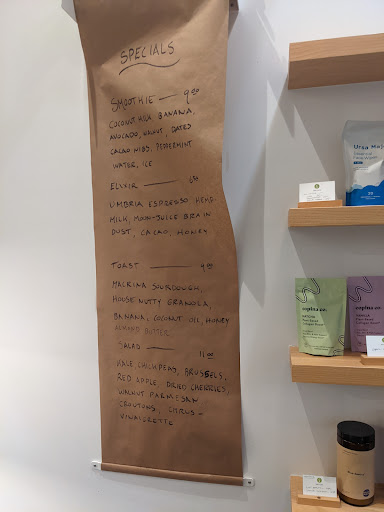 SPECIALS
SMOOTHIE — 9.00
COCONUT MILK, BANANA,
AVOCADO, DATES
CACAO NIBS, PEPPERMINT
WATER, ICE
ELIXIR —
UMBRIA ESPRESSO, HEMP
MILK, MOONJUICE BRAIN
DUST, CACAO, HONEY
TOAST —
MACRINA SOURDOUGH,
HOUSE NUTTY GRANOLA,
BANANA, COCONUT OIL, HONEY
ALMOND BUTTER
SALAD —
11.00
KALE, CHICKPEAS, BRUSSELS,
RED APPLE, DRIED CHERRIES,
WALNUT PARMESAN
CROUTONS, CITRUS -
VINAIGRETTE
Ursa Major